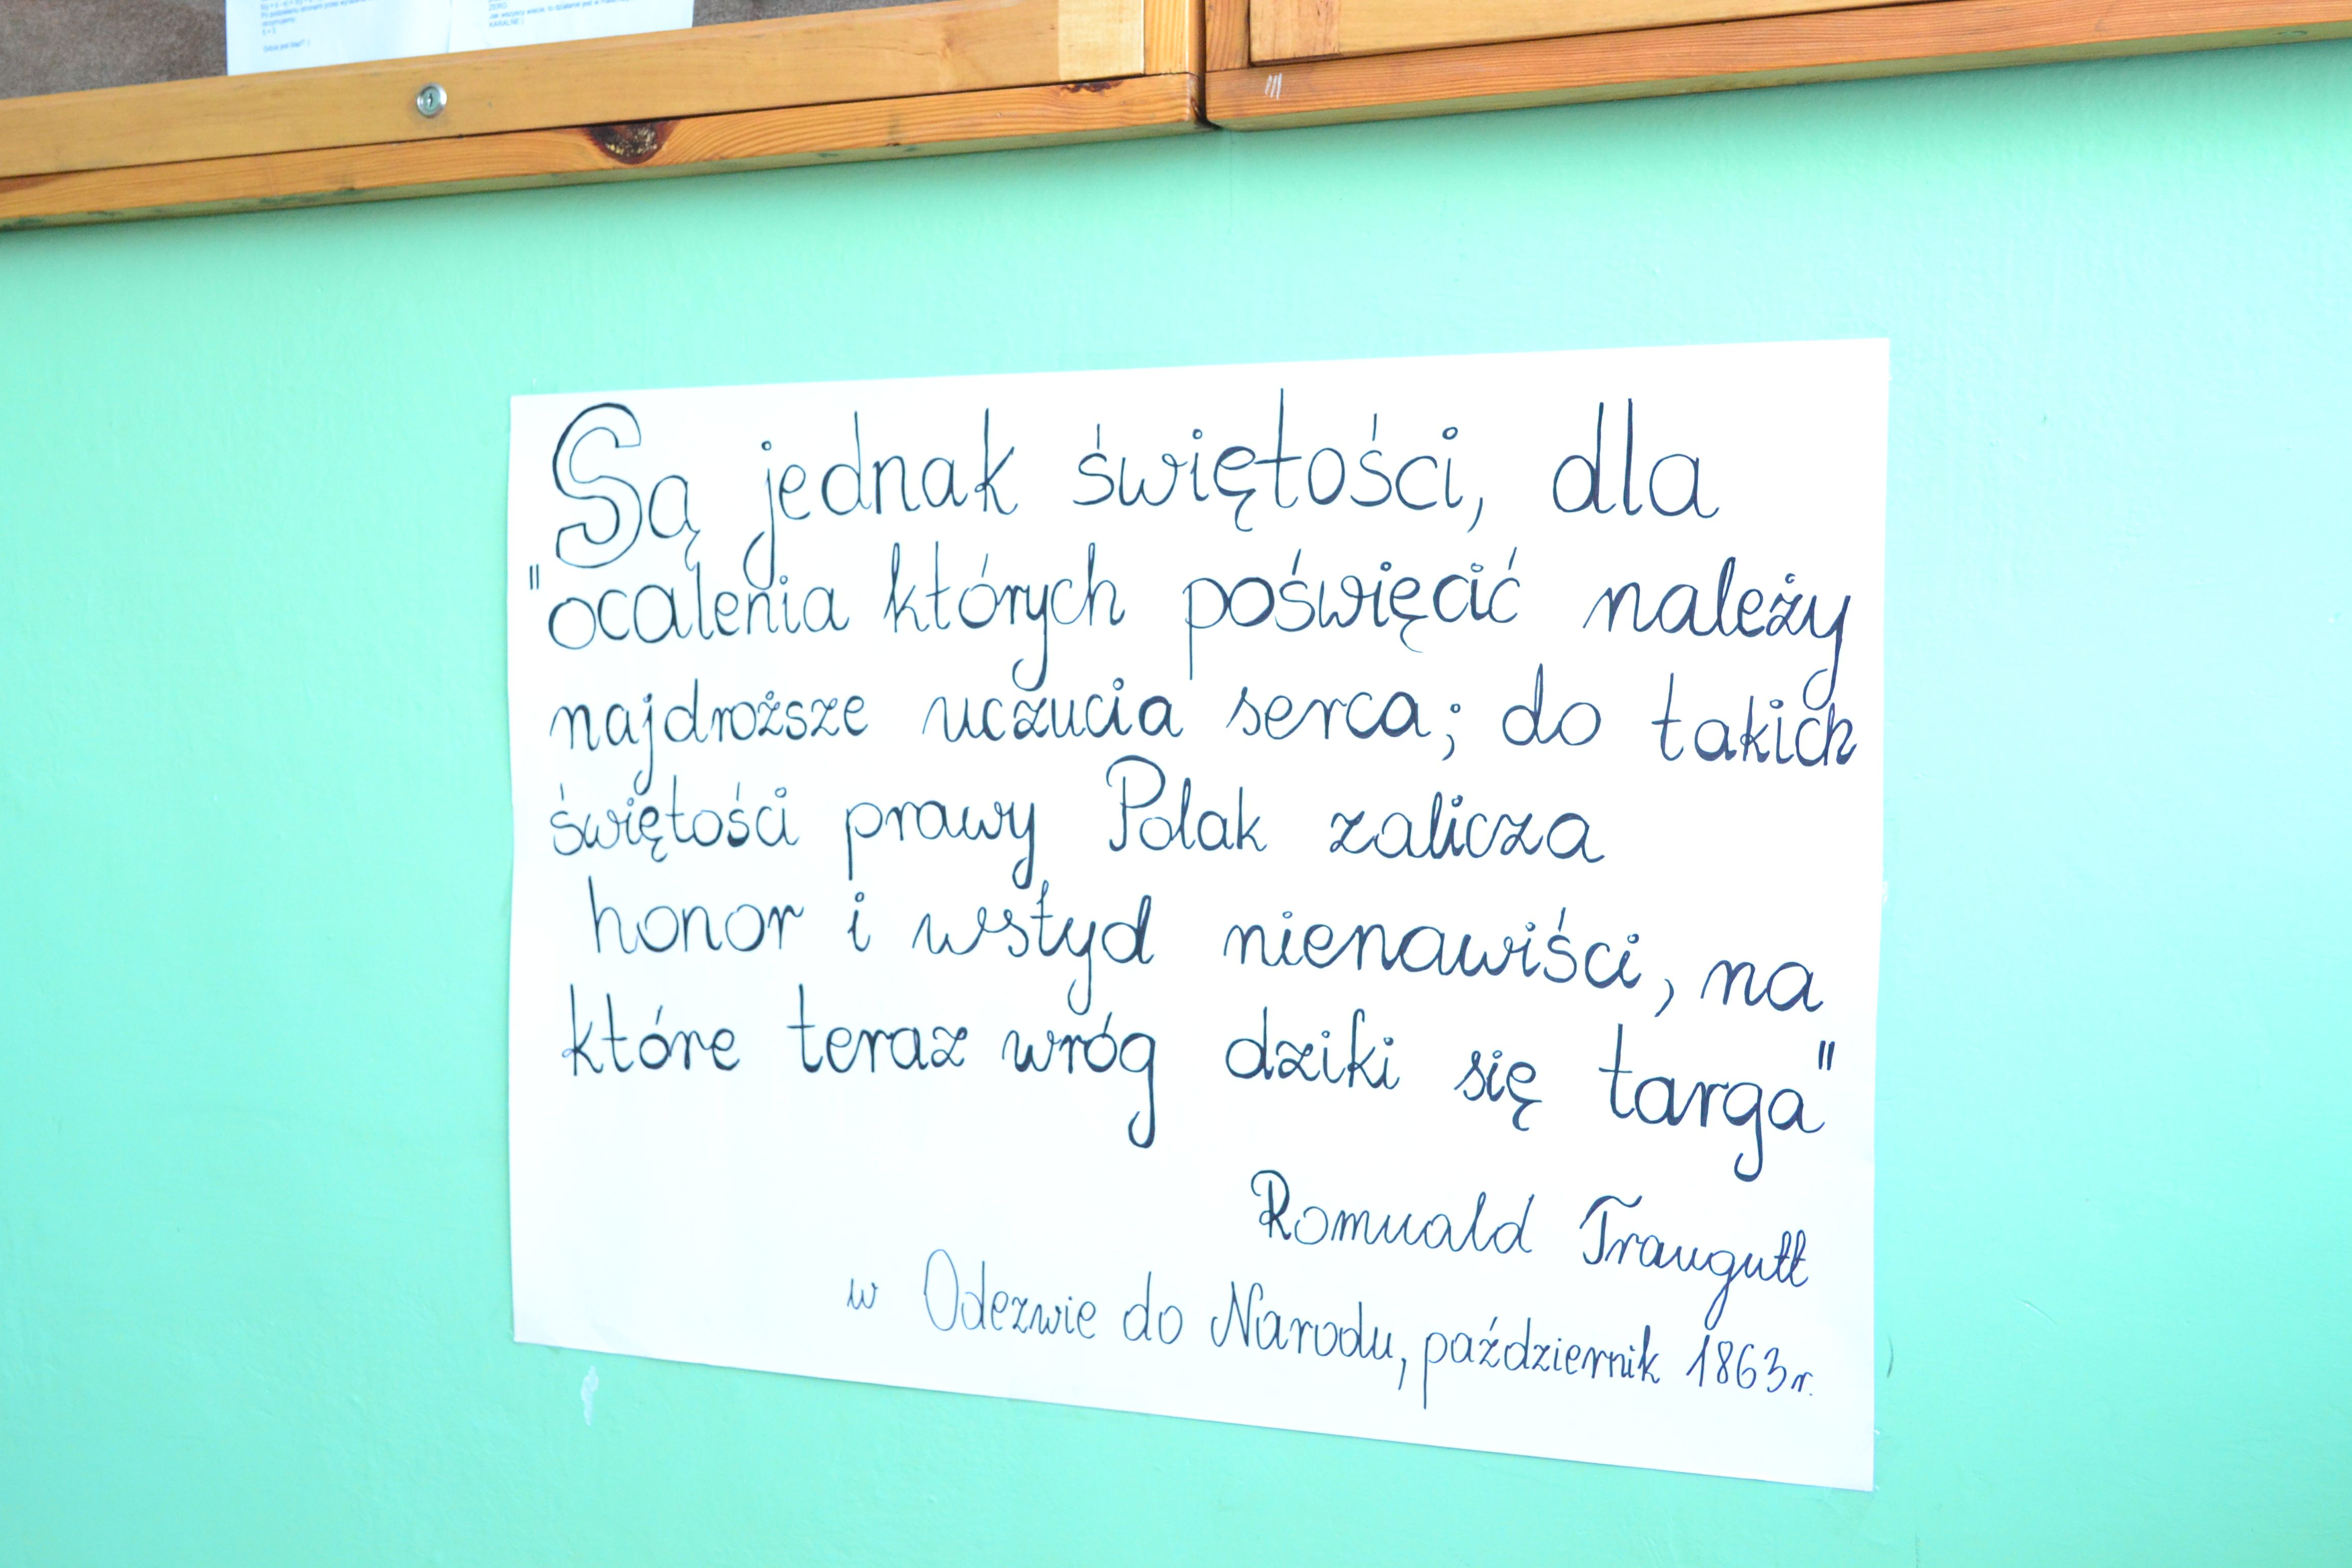 ZERO.
KARALNE:)
Są jednak świętości, dla
"ocalenia których poświęcić należy
najdroższe uczucia serca; do takich
świętości prawy Polak zalicza
honor i wstyd nienawiści, na
które teraz wróg dziki się targa"
Romuald Traugutt
w Odezwie do Narodu, październik 1863r.